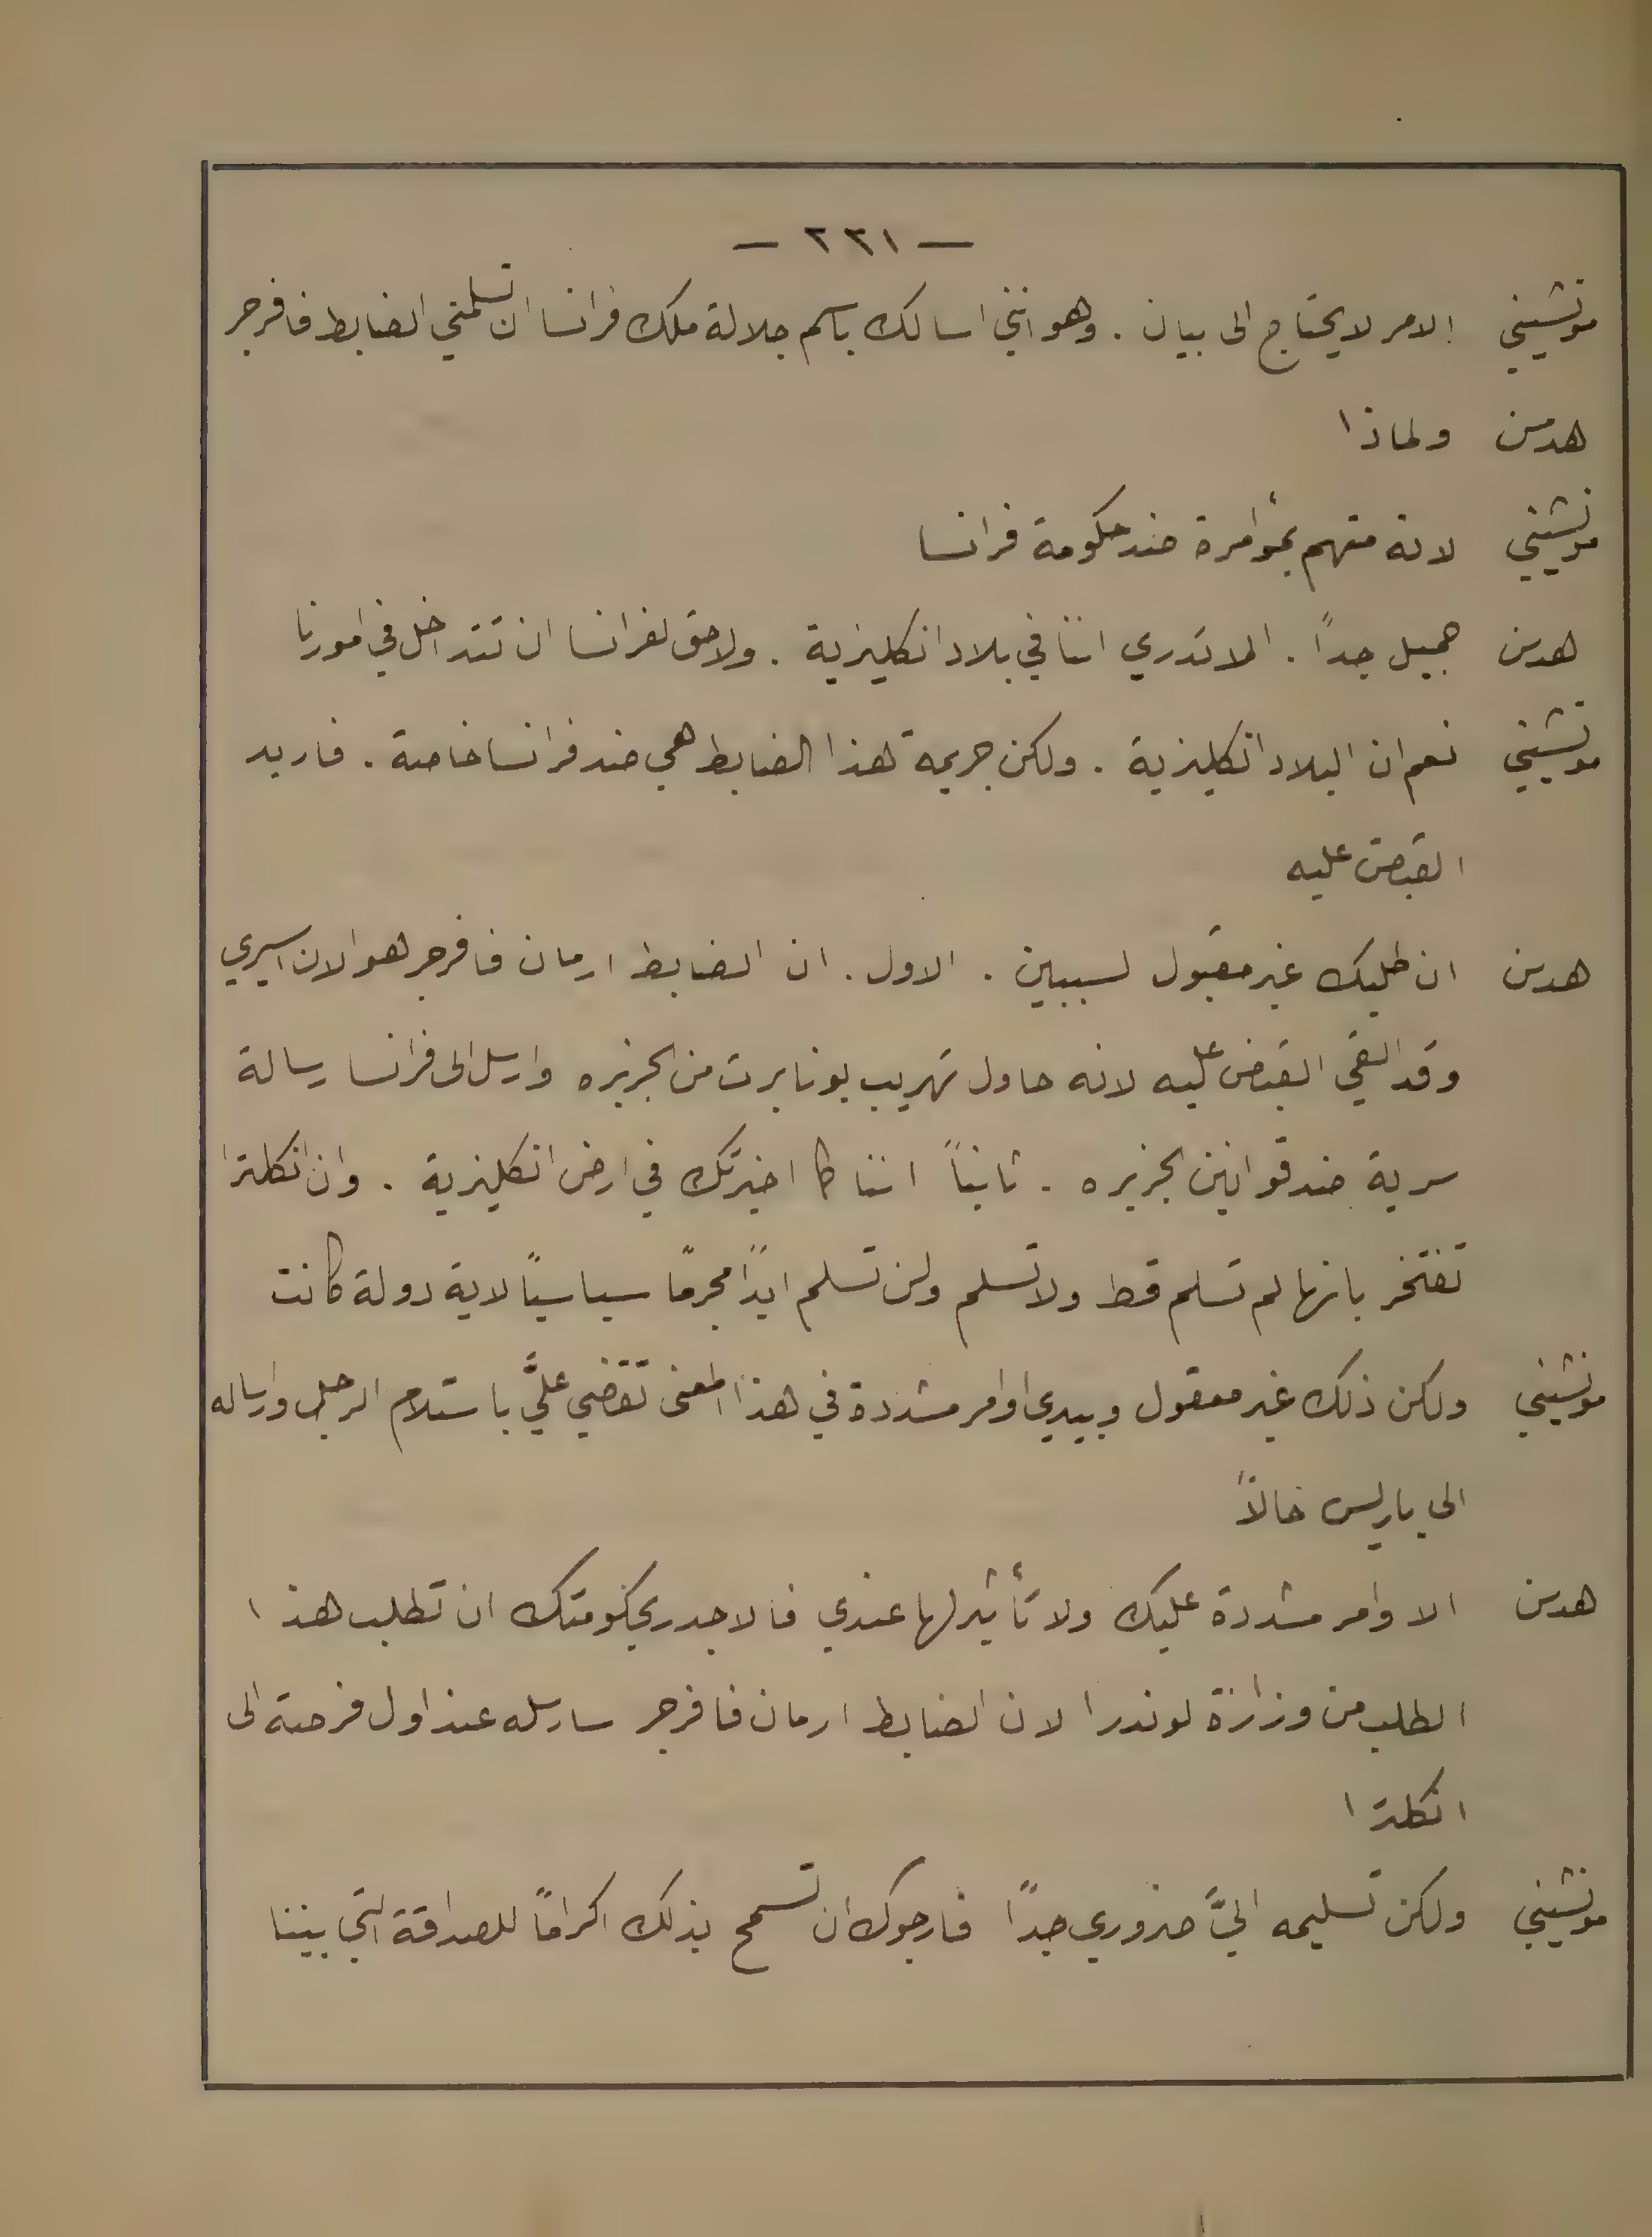 — ٢٣١ —
مونتشيني الامر لا يحتاج الى بيان . وهو انني اسالك باسم جلالة ملك فرانسا ان تسلمني الضابط فافرجر
هدسن ولماذا
مونتشيني لانه متهم بمؤامرة ضد حكومة فرانسا
هدسن جميل جداً . الا تدري اننا في بلاد انكليزية . ولا حق لفرانسا ان تتداخل في امورنا
مونتشيني نعم ان البلاد انكليزية . ولكن جريمة هذا الضابط هي ضد فرانسا خاصة . فاريد
القبض عليه
هدسن ان طلبك غير مقبول لسببين . الاول . ان الضابط ارمان فافرجر هو الان اسيري
وقد القي القبض عليه لانه حاول تهريب بونابرت من الجزيره وارسل الى فرانسا رسالة
سرية ضد قوانين الجزيره . ثانياً اننا كما اخبرتك في ارض انكليزية . وان انكلترا
تفتخر بانها لم تسلم قط ولا تسلم ولن تسلم ابداً مجرماً سياسياً لاية دولة كانت
مونتشيني ولكن ذلك غير معقول وبيدي اوامر مشددة في هذا المعنى تقضي عليَّ باستلام الرجل وارساله
الى باريس حالاً
هدسن الاوامر مشددة عليك ولا تأثير لها عندي فالاجدر بحكومتك ان تطلب هذا
الطلب من وزارة لوندرا لان الضابط ارمان فافرجر سارسله عند اول فرصة الى
انكلترا
مونتشيني ولكن تسليمه اليَّ ضروري جداً فارجوك ان تسمح بذلك اكراماً للصداقة التي بيننا